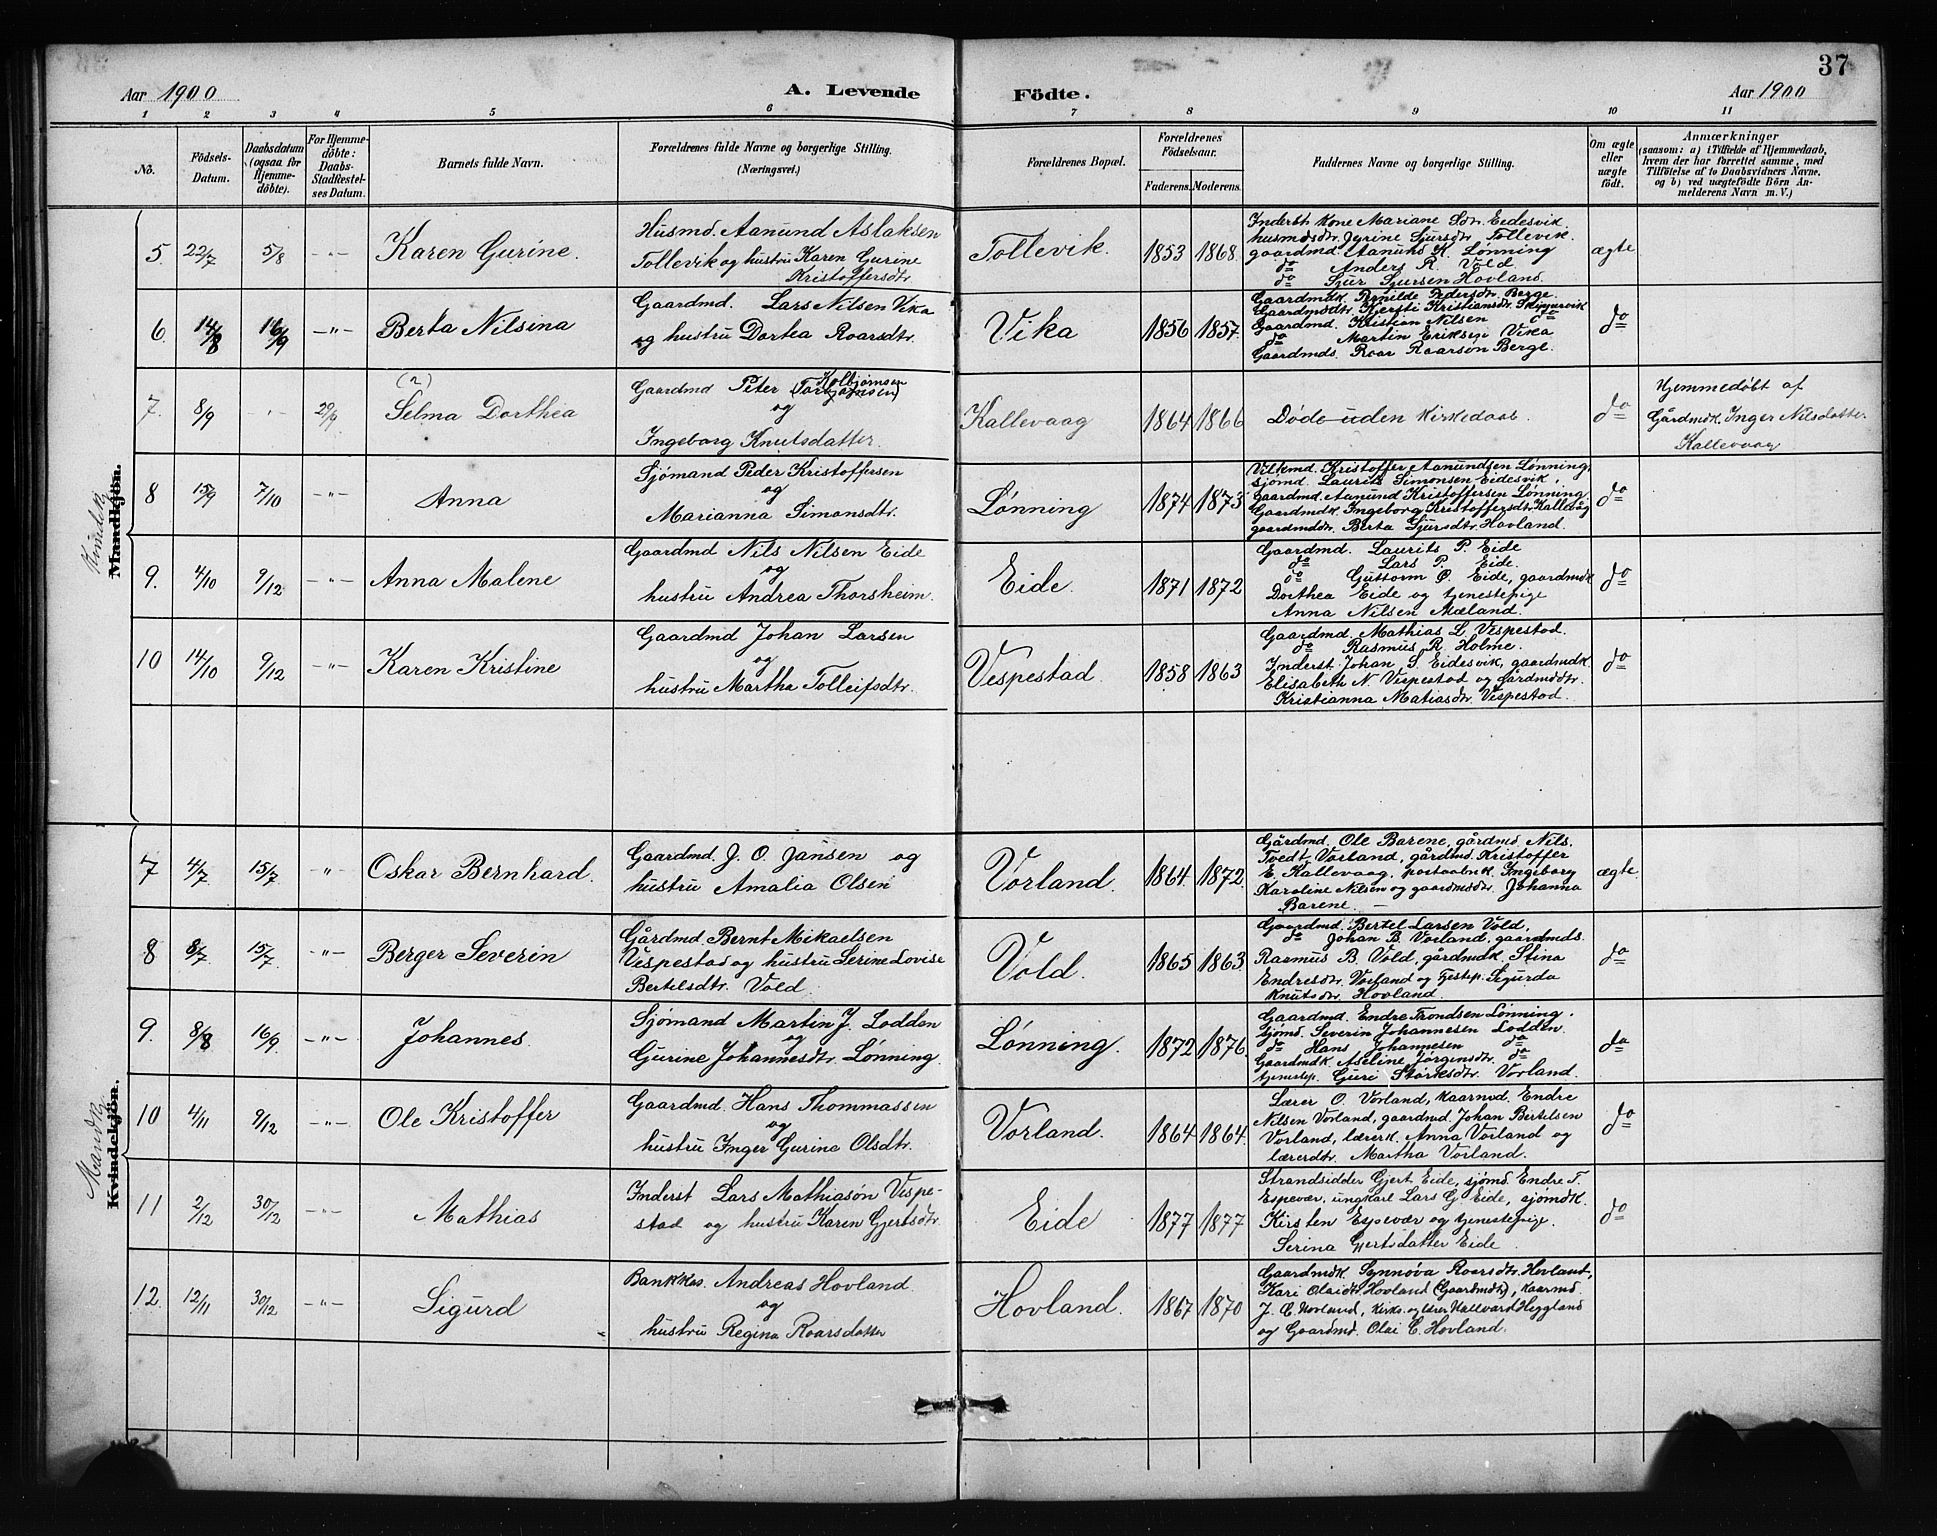 37
Aar 1900 A. Levende Födte. Aar 1900
1 2 3 4 5 6 7 8 9 10 11
No. Födsels-Datum. Daabsdatum (ogsaa for Hjemmedöbte). For Hjemmedöbte: Daabs-Stadfæstelses Datum. Barnets fulde Navn. Forældrenes fulde Navne og borgerlige Stilling. (Næringsvei.) Forældrenes Bopæl. Forældrenes Födselsaar. Faderens. Moderens. Faddernes Navne og borgerlige Stilling. Om ægte eller uægte födt. Anmærkninger (saasom: a) i Tilfælde af Hjemmedaab, hvem der har forrettet samme, med Tilföielse af to Daabsvidners Navne, og b) ved uægtefödte Börn Anmelderens Navn m. V.)
Kvindek
Mandkjön.
5 22/7 5/8 -"- Karen Gurine.
Husmd. Aanund Aslaksen
Tollevik og hustru Karen Gurine
Kristoffersdtr.
Tollevik. 1853 1868.
Inderst Kone Mariane Sdr. Eidesvik.
husmdsdtr. Jyrine Sjursdtr Tollevik.
gaardmd. Aanund K. Lønning
do Anders R. Vold
do Sjur Sjursen Hovland.
ægte
6 14/8 16/9 -"- Berta Nilsina
Gaardmd. Lars Nilsen Vika
og hustru Dortea Roarsdtr.
Vika 1856 1857.
Gaardmdk. Ragnilde Pedersdtr. Berge.
Gaardmdsdtr. Kristiansdtr.
Gaardmd. Kristian Nilsen do
do Martin Eriksen Vika
Gaardmds. Roar Roarson Berge.
do
7. 8/9 -"- 29/9 (2)
Selma Dorthea
Gaardmd Peter Kolbjørnsen (Torbjørnsen)
og
Ingeborg Knutsdatter.
Kallevaag 1864 1866
Døde uden Kirkedaab.
do
Hjemmedøbt af
Gårdmdk. Inger Nilsdatter
Kallevaag
8 15/9 7/10 -"- Anna
Sjømand Peder Kristoffersen
og
Marianna Simonsdtr.
Lønning 1874 1873
Vilkmd. Kristoffer Aanundsen Lønning,
sjømd. Laurits Simonsen Eidesvik,
Gaardmd. Aanund Kristoffersen Lønning.
Gaardmdk. Ingeborg Kristoffersdtr Kallevåg
gaardmddtr. Berta Sjursdtr. Hovland.
do
9. 4/10 9/12 -"- Anna Malene
Gaardmd Nils Nilsen Eide
og
hustru Andrea Thorsheim.
Eide. 1871 1872
Gaardmd. Laurits P. Eide
do Lars P. Eide.
do Guttorm O. Eide, gaardmdk
Dorthea Eide og tjenestepige
Anna Nilsen Mæland.
do
10 14/10 9/12 -"- Karen Kristine
Gaardmd Johan Larsen
og
hustru Martha Tolleifsdtr.
Vespestad 1858 1863
Gaardmd. Mathias L Vespestad.
do Rasmus R. Holme.
Inderst. Johan S. Eidesvik, gaardmdk.
Elisabeth N. Vespestad og Gårdmddtr.
Kristianna Matiasdtr. Vespestad.
do
Mandk
Kvindekjön.
7 4/7 15/7 " Oskar Bernhard.
Gaardmd. J. O. Jansen og
hustru Amalia Olsen
Vorland. 1864. 1872.
Gårdmd. Ole Barene, gårdmd. Nils.
Tvedt Vorland, gårdmd. Kristoffer
E. Kallevaag, Ingeborg
Karoline Nilsen og gaardmddtr. Johanna
Barene. —
ægte.
8 8/7 15/7. -"- Berger Severin
Gårdmd. Bernt Mikaelsen
Vespestad og hustru Serine Lovise
Bertelsdtr. Vold.
Vold. 1865 1863.
Gaardmd. Bertel Larsen Vold,
do Johan B. Vorland, gaardmds.
Rasmus B. Vold, gårdmdk. Stina
Endresdtr. Vorland og Tjestep. Sigurda
Knutsdtr. Hovland.
do
9. 8/8 16/9 -"- Johannes.
Sjømand Martin J. Lodden
og
Gurine Johannesdtr. Lønning.
Lønning. 1872 1876.
Gaardmd. Endre Trondsen Lønning.
Sjømd. Severin Johannesen Lodden.
do Hans Johannesen do
Gaardmdk Aseline Jørgensdtr. do
tjenestep. Guri Vorland.
do
10 4/11 9/12 -"- Ole Kristoffer
Gaardmd. Hans Thommassen
og
hustru Inger Gurine Olsdtr.
Vorland. 1864 1864.
Lærer O. Vorland, Kaarmd. Endre
Nilsen Vorland, gaardmd Johan Bertelsen
Vorland, lærerk. Anna Vorland og
lærerdtr. Martha Vorland.
do
11 2/12 30/12 -"- Mathias
Inderst Lars Mathiasøn Vespe-
stad og hustru Karen Gjertsdtr.
Eide 1877 1877
Strandsidder Gjert Eide, sjømd. Endre T.
Espevær, ungkarl Lars G Eide, sjømdk.
Kirsten Espevær og tjenestepige.
Serina Gjertsdatter Eide.
do
12. 12/11 30/12 -"- Sigurd
Bankkas. Andreas Hovland.
og
hustru Regina Roarsdatter
Hovland. 1867 1870
Gaardmdk. Synnøva Roarsdtr. Hovland,
Kari Olaidtr. Hovland (Gaardmdtr), Kaarmd.
J. C. Hovland, Hallvard Heggland
og Gaardmd. Olai C. Hovland.